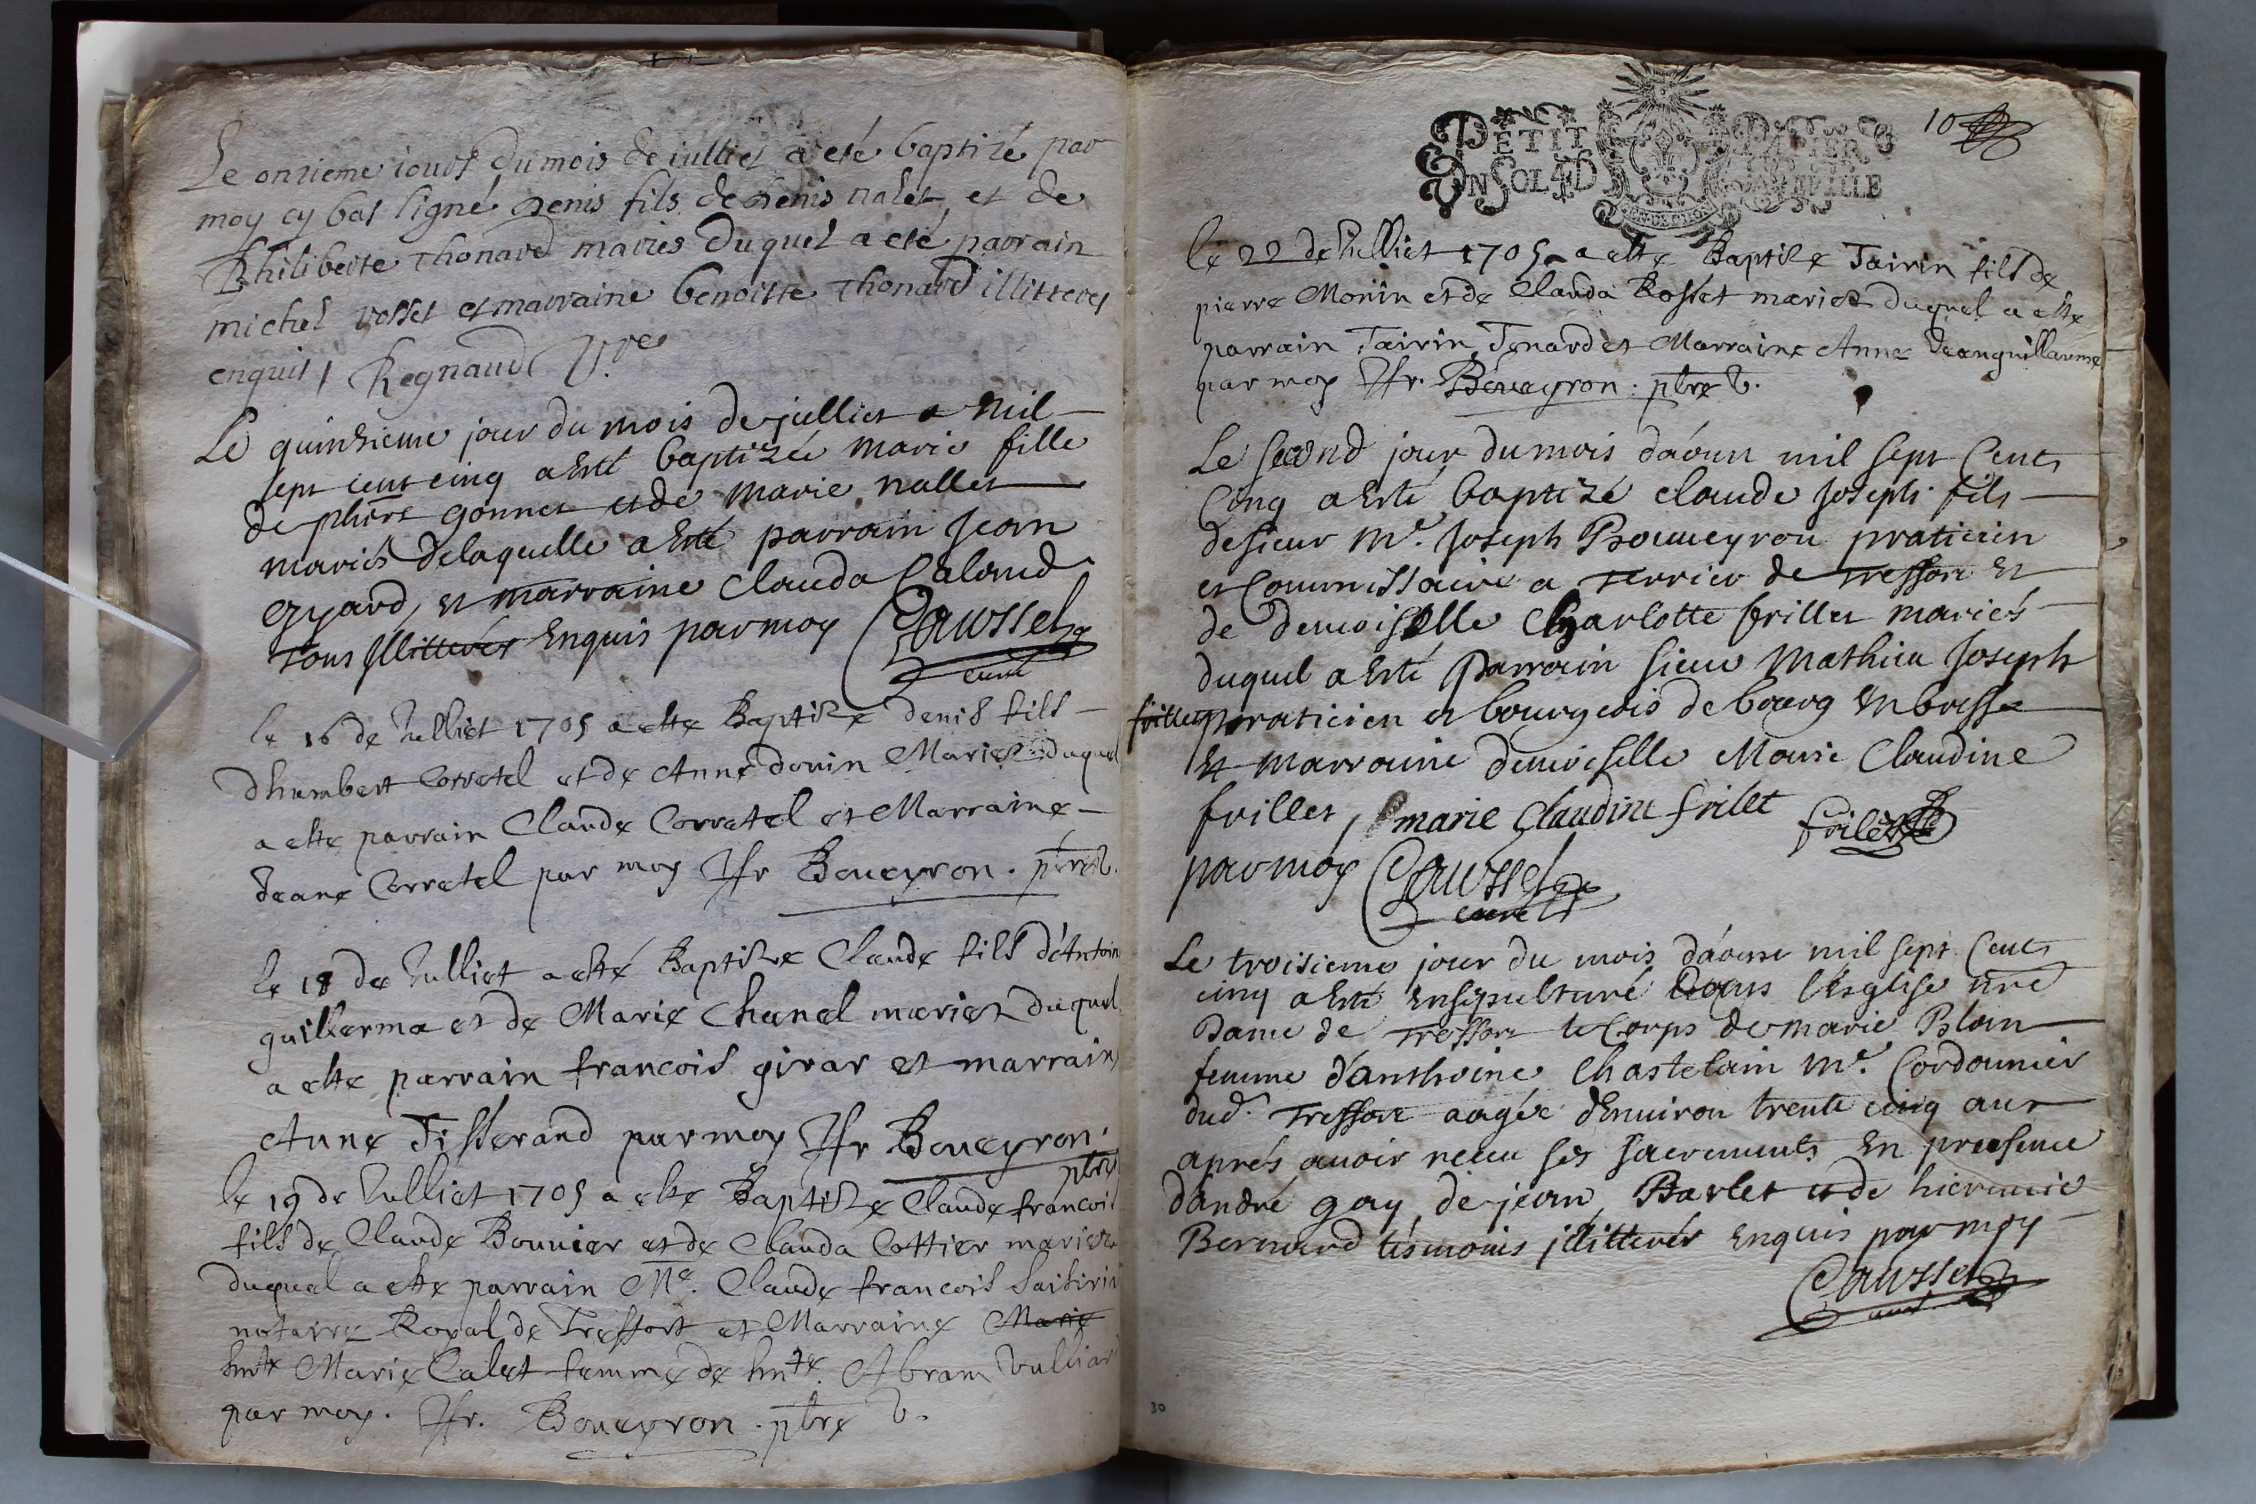 Le onzieme iours du mois de iulliet a eté baptizé par
moy cy bas signé Denis fils de Denis nalet et de
Philiberte Thonard mariés duquel a eté parrain
michel rosset et marraine benoitte Thonard illitterés
enquis / Regnaud V.re
Le quinzieme jour du mois de julliet mil
sept cent cinq a esté baptizée marie fille
de gonnet et de marie nallet
mariés de laquelle a esté parrain Jean
gyard, et marraine Clauda Caland
tous illitterés enquis par moy Caussel
curé
le 16 de Julliet 1705 a este Baptize denis fils
dhumbert Corretel et de Anne donin Maries duquel
a este parrain Claude Corretel et Marraine
Jeane Corretel par moy Jfr Boueyron . ptre V.
le 18 de Julliet a esté Baptize Claude fils d'Antoin
guillerma et de Marie Chanel maries duquel
a este parrain francois girar et marrain
Anne Tisserand par moy Jfr Boueyron .
ptre
le 19 de Julliet 1705 a este Baptize Claude francois
fils de Claude Bouuier et de Clauda Cottier maries
duquel a este parrain Me. Claude francois
notaire Royal de Treffort et Marraine Marie
hnte Marie Calet femme de hnte. Abram Vulliar
par moy . Jfr. Boueyron . ptre V.
10
PETIT PAPIER
UN SOL 4 D LA FEUILLE
le 22 de Julliet 1705 a este Baptize Tairin fils de
pierre Monin et de Clauda Rosset maries duquel a este
parrain Tairin Tenard et Marraine Anne Jeanguillaume
par moy Jfr. Boueyron . ptre V.
Le second jour du mois d'aoust mil sept Cent
Cinq a esté baptizé claude Joseph fils
de sieur Me. Joseph Bouueyron praticien
et Commissaire a Terrier de Treffort et
de demoiselle Charlotte frillet mariés
duquel a esté parrain sieur Mathieu Joseph
frillet praticien et bourgeois de bourg en bresse
et marraine demoiselle Marie Claudine
frillet, marie Claudine frilet frilet
par moy Caussel
curé
Le troisieme jour du mois d'aoust mil sept Cent
cinq a esté ensepulturé dans l'esglise nre
Dame de Treffort le Corps de marie Blan
femme d'anthoine Chastelain Me. Cordonnier
dud. Treffort aagée d'enuiron trente cinq ans
aprés auoir receu ses sacrements en presence
d'andré gay, de jean Barlet et de hieremie
Bernard tesmoins jllitterés enquis par moy
Caussel
curé
30